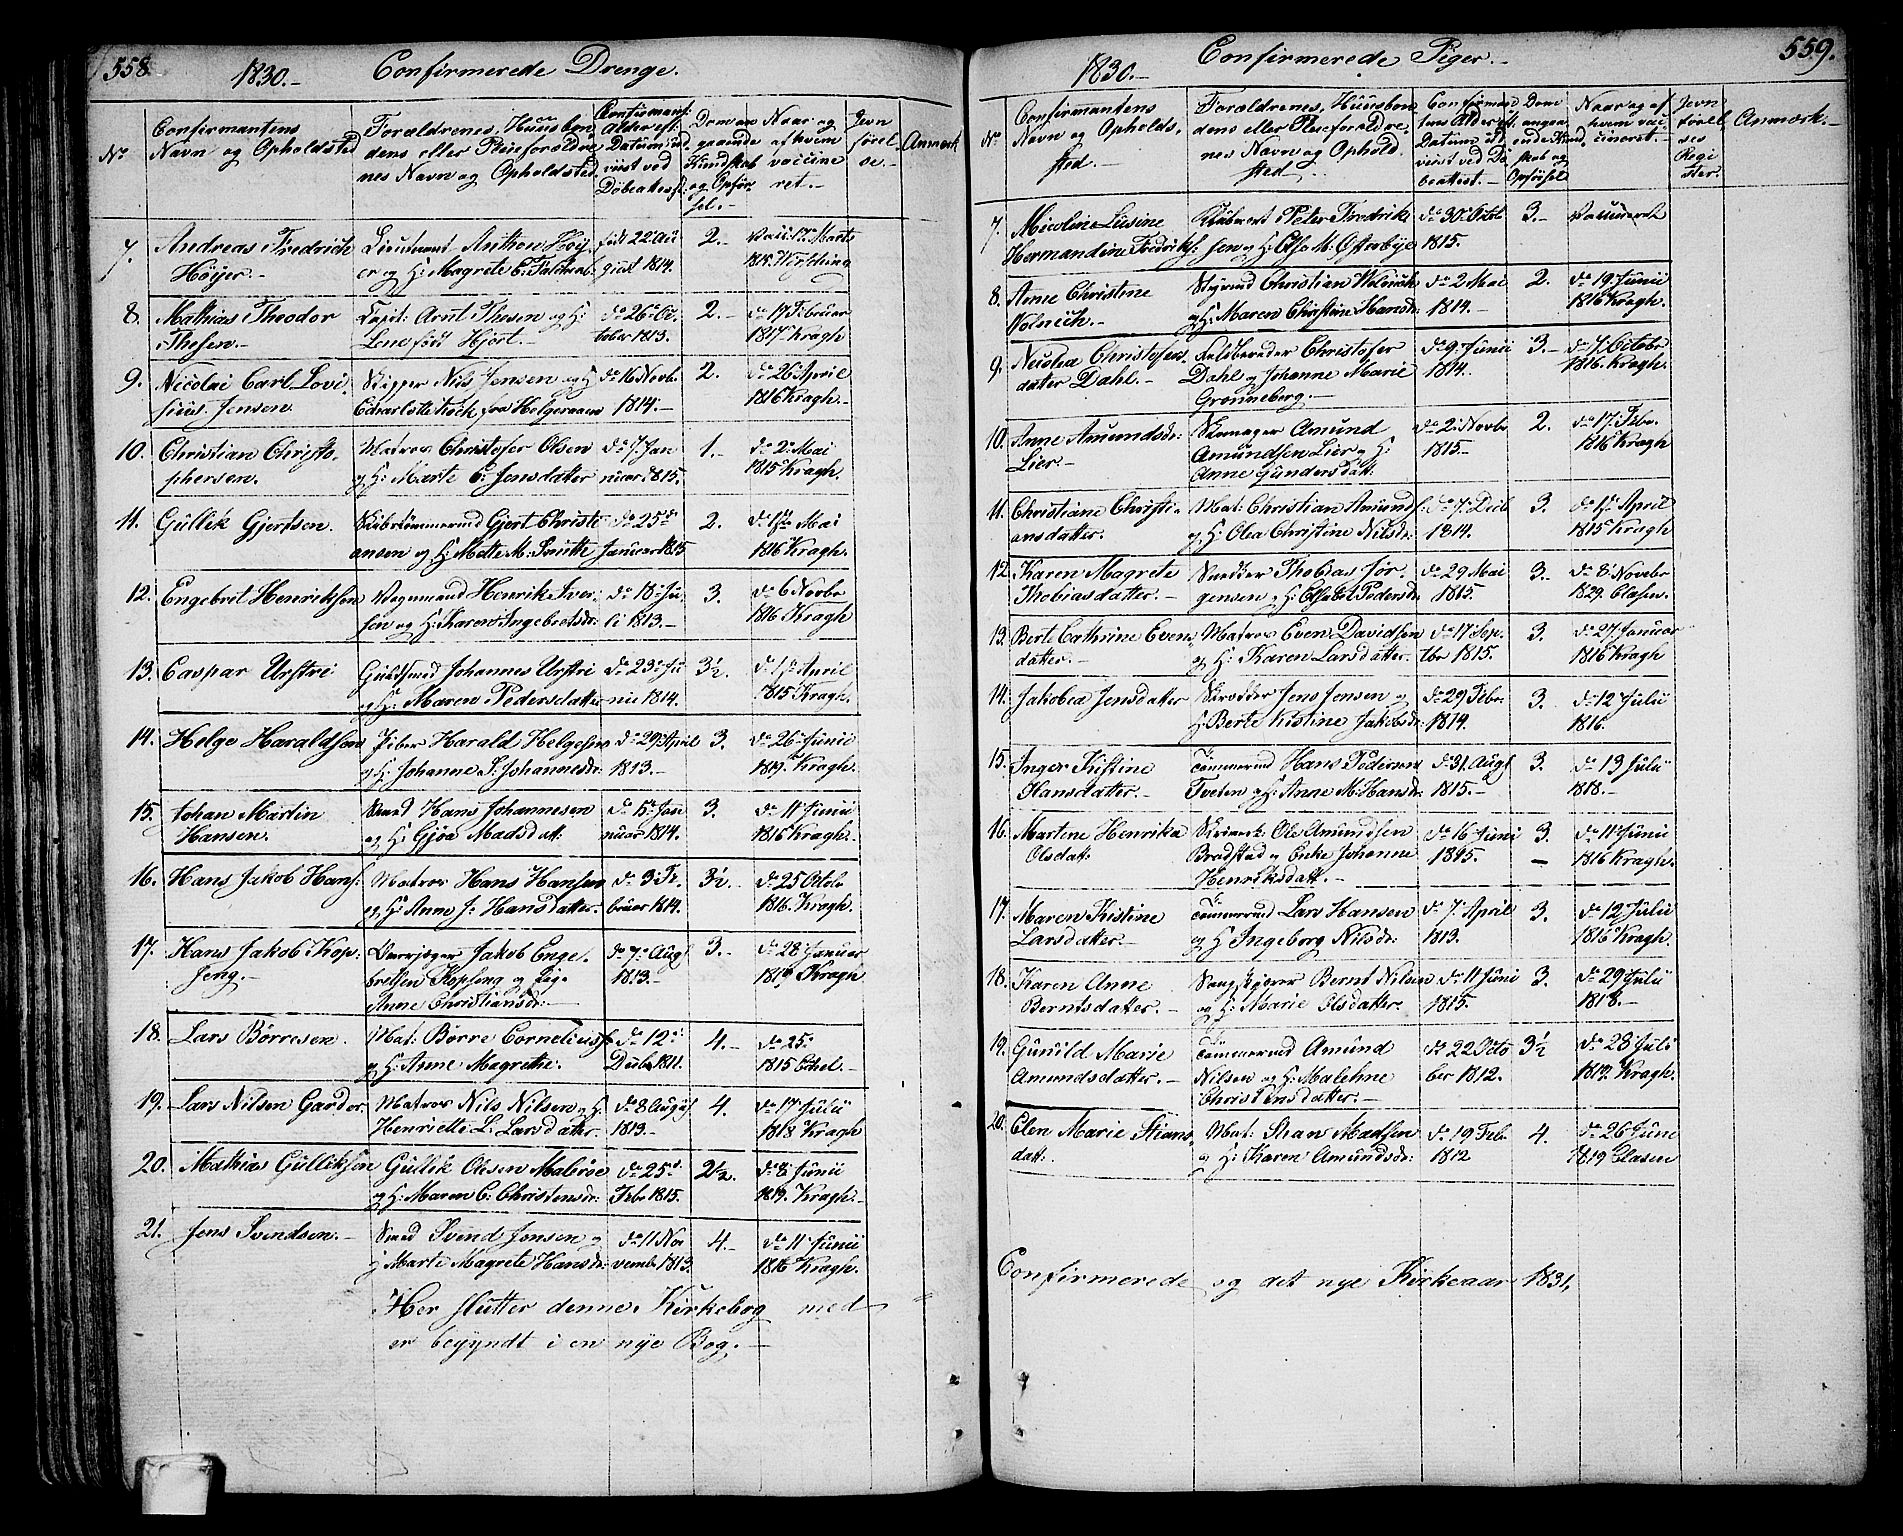 558.
1830.—
Confirmerede Drenge.
No
Confirmantens
Navn og Opholdsted
Forældrenes, Huusbon
dens eller Pleieforældre
nes Navn og Opholdsted.
Confirmant.
Alder eft.
Datum ud
viist ved
Døbeattest
Dom an
gaaende
Kundskab
og Opfør
sel.—
Naar og
af hvem
vaccine
ret.—
Jevn
førel
se.
Anmærk
7.
Andreas Fredrich
Höyer.—
Lieutnant Anthon Höy
er og H: Magrete C: Falchenb.
født 22 Au
gust 1814.
2.—
8.
Mathias Theodor
Thesen.—
Capit: Arnt Thesen og H:
Lene född Hjort.—
do 26 Oc
tober 1813.
2.—
do 17 Februar
1817 Kragh
9.
Nicolai Carl Lovi
sius Jensen.
Skipper Nils Jensen og H
Charlotte Kock fra Helgeraaen
do 16 Novbr.
1814.—
2.
do 26 April
1816 Kragh.—
10.
Christian Christo
phersen.
Matros Christofer Olsen
og H: Marte C: Jensdatter
do 7 Jan
nuar 1815.
1.—
do 2 Mai
1815 Kragh.
11.
Güllik Gjertsen.
Gjert Christi
ansen og H: Mette M:
do 25de
Januar 1815
2.
do 1ste Mai
1816 Kragh.
12.
Engebret Henriksen
Vognmand Henrik Iver
sen og H: Karen Ingebretsdr:
do 18 Ju
li 1813.—
3.
do 6 Novbr
1816 Kragh
13.
Caspar Urstri
Guldsmed Johannes Urstri
og H: Maren Pedersdatter
do 23 Ju
nii 1814.
3½.
do 1ste April
1815 Kragh.
14.
Helge Haraldsen
Fisker Harald Helgesen
og H: Johanne S: Johannesdr:
do 29 April
1813.—
3.
do 26 Junii
1819. Kragh.
15.
Johan Martin
Hansen.
Smed Hans Johannesen
og H: Gjöa Madsdatt.
do 15 Jan
nuar 1814.
3.
do 11 Junii
1816 Kragh.
16.
Hans Jakob Hans:
Matros Hans Hansen
og H: Anne J: Hansdatter.
do 3 Fe
bruar 1814.
3½.
do 25 Octob
1816. Kragh.
17.
Hans Jakob Kop
seng.—
Jakob Enge
bretsen Kopseng og Pige
Anne Christiansdr:—
do 7 Aug
1813.—
3.—
do 28 Januar
1819 Kragh
18.
Lars Börresen.
Mat: Börre Corneliuss
og H: Anne Magrethe.
do 12
Decbr 1811.
4.—
do 25
1815 Edel.—
19.
Lars Nilsen Garder.
Matros Nils Nilsen og H:
Henriette L: Larsdatter.
do 8 August
1813.—
4.
do 17 Julii
1818 Kragh
20.
Mathias Gülliksen
Güllik Olsen Maleröe
og H: Maren C: Christensdr:
do 25
Febr 1815.
2½.
do 8 Junii
1819. Kragh.
21.
Jens Svendsen.—
Smed Svend Jensen og
Marte Magrete Hansdr:
do 11 No
vemb 1813.
4.—
do 11 Junii
1816 Kragh.
Her slutter denne Kirkebog med
er begyndt i en nye Bog.—
559.
1830.—
Confirmerede Piger.—
No
Confirmantens
Navn og Opholds,
sted.—
Forældrenes, Huusbon
dens eller Pleieforældre
nes Navn og Ophold
sted.
Confirman
tens Alder eft
Datum ud
viist ved Dö
beattest.—
Dom
angaa
ende Kund
skab og
Opförsel
Naar og af
hvem vac
cineret.—
Jevn
förel
ses
Regi
ster.
Anmærk.—
7.
Micoline Lüsine
Hermandine Fredriks:
Peter Fredrik
sen og H: Else M: Österbye
do 30 Octob
1815.
3.—
Vaccineret
8.
Anne Christine
Volnich.—
Christian Wolnich
og H: Maren Christine Hansdr:
do 2 Mai
1814.—
2.
do 19 Junii
1816 Kragh.
9.
Nicolea Christofers
datter Dahl.—
Feldbereder Christofer
Dahl og Johanne Marie
Grönneberg.—
do 9 Junii
1814.
3.—
do 7 Octobr
1816. Kragh.
10.
Anne Amundsdr:
Lier.—
Skomager Amund
Amundsen Lier og H:
Anne Gundersdatt:
do 2 Novbr
1815.—
2.
do 17 Febr.
1816 Kragh
11.
Christiane Christi
ansdatter.
Mat: Christian Amunds:
og H: Olea Christine Nilsdr:
do 7 Decb
1814.
3.
do 1ste April
1815 Kragh
12.
Karen Magrete
Thobiasdatter.—
Snedker Thobias Jör
gensen og H: Elsebet Pedersdr:
do 29 Mai
1815.
3.
do 8 Novebr
1829. Clasen.
13.
Berte Cathrine Evens
datter.—
Matros Even Davidsen
og H: Karen Larsdatter.
do 17 Sep
tbr 1815.
3.
do 27 Januar
1816 Kragh
14.
Jakobea Jensdatter
Skrædder Jens Jensen og
H: Berte Kistine Jakobsdr:
do 29 Febr.
1814.
3.
do 12 Julii
1816.
15.
Inger Kristine
Hansdatter.—
Tömmermd Hans Pedersen
Tveten og H: Anne M: Hansdr:
do 31 Aug
1815.—
3.
do 13 Julii
1818.—
16.
Martine Henrika
Olsdatt:
Ole Amundsen
Bradstad og Enke Johanne
Henriksdatt.—
do 16 Juni
1815.
3.
—
do 11 Junii
1816 Kragh.
17.
Maren Kistine
Larsdatter.—
Tömmermd Lars Hansen
og H Ingeborg Nilsdr:
do 7 April
1813.
3.
do 12 Julii
1816 Kragh.
18.
Karen Anne
Berntsdatter.—
Bernt Nilsen
og H: Marie Olsdatter.
do 11 Juni
1815.
3.
do 29 Julii
1818.—
19.
Gunild Marie
Amundsdatter.—
Tömmermd Amund
Nilsen og H: Malehne
Christensdatter.—
do 22 Octo
ber 1812.
3½
do 28 Juli
1819. Kragh.
20.
Elen Marie Stians
datt:
Mat: Stian Madsen
og H: Karen Amundsdr:
do 19 Feb.
1812
4.
do 26 June
1819 Clasen
Confirmerede og det nye Kirkeaar 1831,